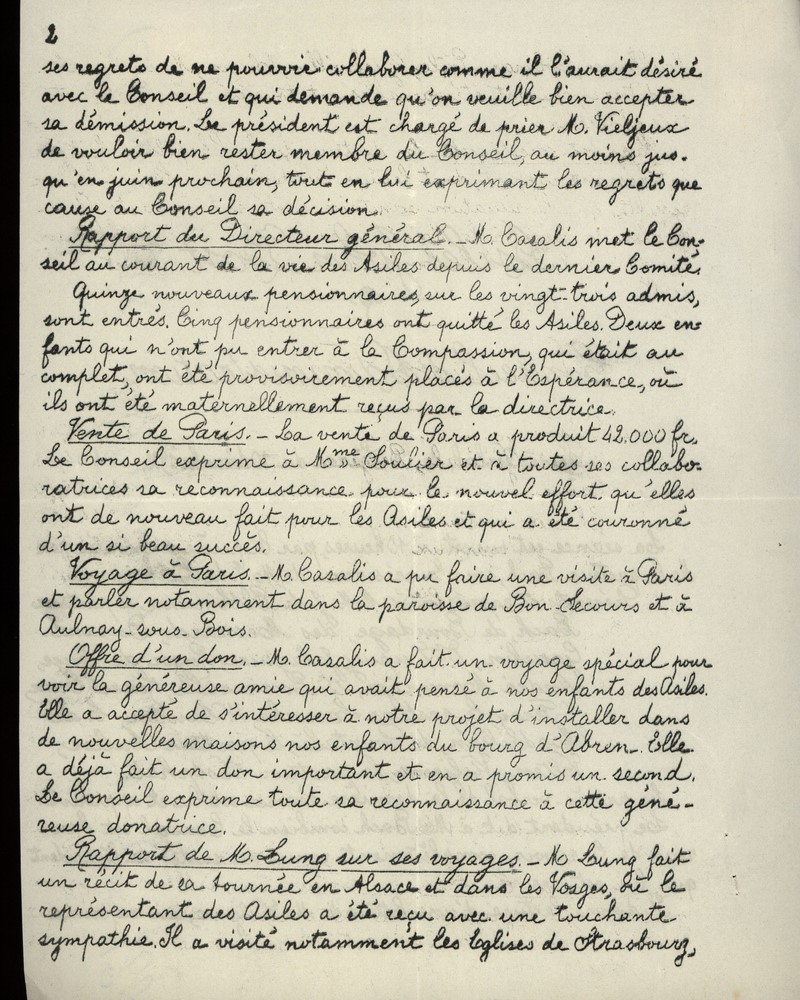 2
ses regrets de ne pouvoir collaborer comme il l'aurait désiré
avec le Conseil et qui demande qu'on veuille bien accepter
sa démission. Le président est chargé de prier M. Vieljeux
de vouloir bien rester membre du Conseil, au moins jus-
qu'en juin prochain, tout en lui exprimant les regrets que
cause au Conseil sa décision.
Rapport du Directeur général. - M. Casalis met le Con-
seil au courant de la vie des Asiles depuis le dernier Comité.
Quinze nouveaux pensionnaires, sur les vingt-trois admis,
sont entrés. Cinq pensionnaires ont quitté les Asiles. Deux en-
fants qui n'ont pu entrer à la Compassion, qui était au
complet, ont été provisoirement placés à l'Espérance, où
ils ont été maternellement reçus par la directrice.
Vente de Paris. - La vente de Paris a produit 42.000 fr.
Le Conseil exprime à Mme Soulier et à toutes ses collabo-
ratrices sa reconnaissance pour le nouvel effort qu'elles
ont de nouveau fait pour les Asiles et qui a été couronné
d'un si beau succès.
Voyage à Paris. - M. Casalis a pu faire une visite à Paris
et parler notamment dans la paroisse de Bon-Secours et à
Aulnay-sous-Bois.
Offre d'un don. - M. Casalis a fait un voyage spécial pour
voir la généreuse amie qui avait pensé à nos enfants des Asiles.
Elle a accepté de s'intéresser à notre projet d'installer dans
de nouvelles maisons nos enfants du bourg d'Abren. Elle
a déjà fait un don important et en a promis un second.
Le Conseil exprime toute sa reconnaissance à cette géné-
reuse donatrice.
Rapport de M. Lung sur ses voyages. - M Lung fait
un récit de sa tournée en Alsace et dans les Vosges, où le
représentant des Asiles a été reçu avec une touchante
sympathie. Il a visité notamment les Eglises de Strasbourg,